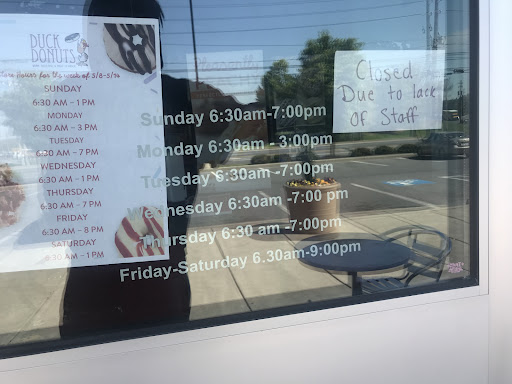 DUCK
DONUTS
Store Hours for the week of 5/8-5/14
SUNDAY
6:30 AM – 1 PM
MONDAY
6:30 AM – 3 PM
TUESDAY
6:30 AM – 7 PM
WEDNESDAY
6:30 AM – 1 PM
THURSDAY
6:30 AM – 7 PM
FRIDAY
6:30 AM – 8 PM
SATURDAY
6:30 AM – 1 PM
Sunday 6:30am-7:00pm
Monday 6:30am - 3:00pm
Tuesday 6:30am -7:00pm
Wednesday 6:30am -7:00 pm
Thursday 6:30 am -7:00pm
Friday-Saturday 6.30am-9:00pm
Closed
Due to lack
of Staff